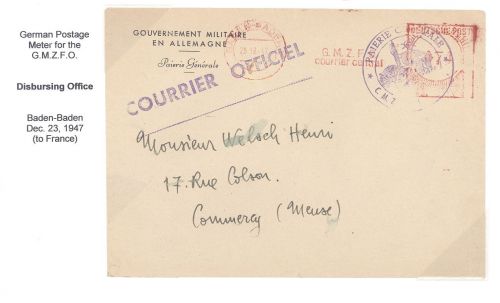 German Postage
Meter for the
G.M.Z.F.O.
Disbursing Office
Baden-Baden
Dec. 23, 1947
(to France)
GOUVERNEMENT MILITAIRE
EN ALLEMAGNE
Paierie Générale
COURRIER OFFICIEL
G. M. Z. F.
courrier central
PAIERIE
Monsieur Weloch Henri
17. Rue Colson.
Commercy (Meuse)